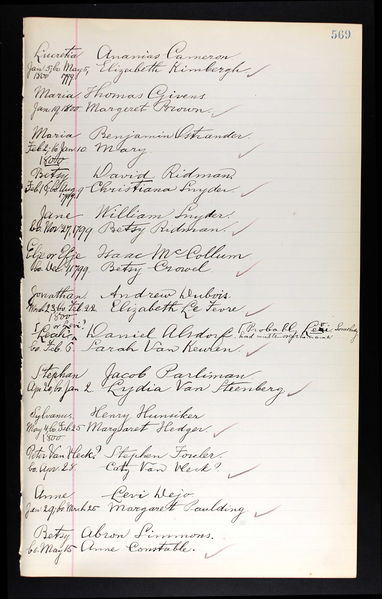 569
Lucretia Ananias Cameron
Jan 5, bo May 5, Elizabeth Kimbergh
1800 1799
Maria Thomas Givens
Jan 19, 1800 Margeret Brown
Maria Benjamin Ostrander
Feb 2, bo Jan 10 Mary
1800
Betsy David Ridman
Feb 1, bo Aug 9 Christiana Snyder
1799
Jane William Snyder.
bo. Nov. 27, 1799 Betsy Ridman
Elze or Efze Isaac McCollum
bo Dec 4, 1799 Betsy Crowel
Jonathan Andrew Dubois
March 23, bo Feb 22 Elizabeth Le Fevre
1800
Leah Daniel Alsdorf Probably Levi
bo. Feb 6 Sarah Van Keuren
Stephen Jacob Parliman
Apr 20, bo Jan 2 Lydia Van Steenberg
Sylvanus Henry Hunsiker
May 4, bo Feb 25 Margaret Hedger
1800
Peter Van Vleck? Stephen Fowler
bo Apr. 28 Caty Van Vleck?
Anne Levi Dejo
Jan. 29, bo March 25 Margarett Paulding
Betsy Abron Simmons.
bo. May 15 Anne Constable.